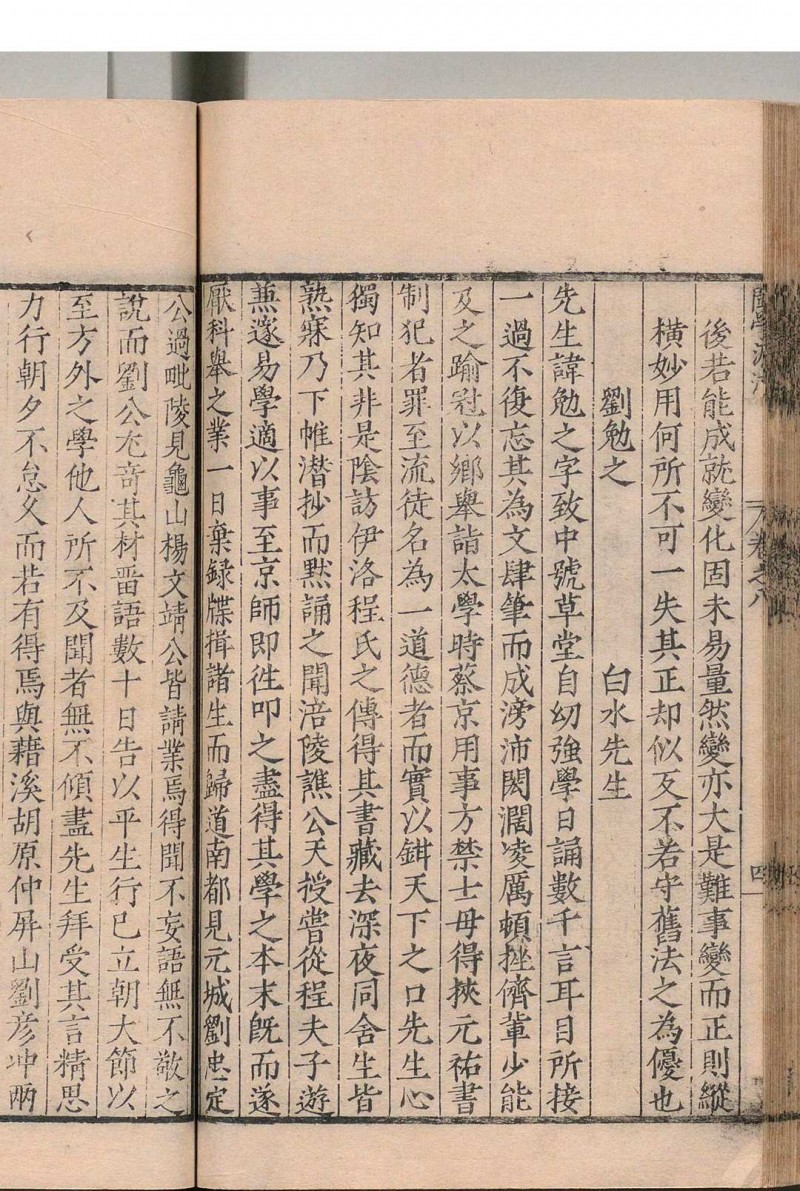 後若能成就變化固未易量然變亦大是難事變而正則縱
橫妙用何所不可一失其正却似反不若守舊法之為優也
劉勉之 白水先生
先生諱勉之字致中號草堂自幼強學日誦數千言耳目所接
一過不復忘其為文肆筆而成滂沛閎濶凌厲頓挫儕輩少能
及之踰冠以鄉舉詣太學時蔡京用事方禁士毋得挾元祐書
制犯者罪至流徒名為一道德者而實以鉗天下之口先生心
獨知其非是陰訪伊洛程氏之傳得其書藏去深夜同舍生皆
熟寐乃下帷潛抄而默誦之聞涪陵譙公天授嘗從程夫子遊
兼邃易學適以事至京師即徃叩之盡得其學之本末旣而遂
厭科舉之業一日棄録牒揖諸生而歸道南都見元城劉忠定
公過毗陵見龜山楊文靖公皆請業焉得聞不妄語無不敬之
說而劉公尤奇其材畱語數十日告以平生行已立朝大節以
至方外之學他人所不及聞者無不傾盡先生拜受其言精思
力行朝夕不怠久而若有得焉與藉溪胡原仲屏山劉彥冲兩
卷之八
四